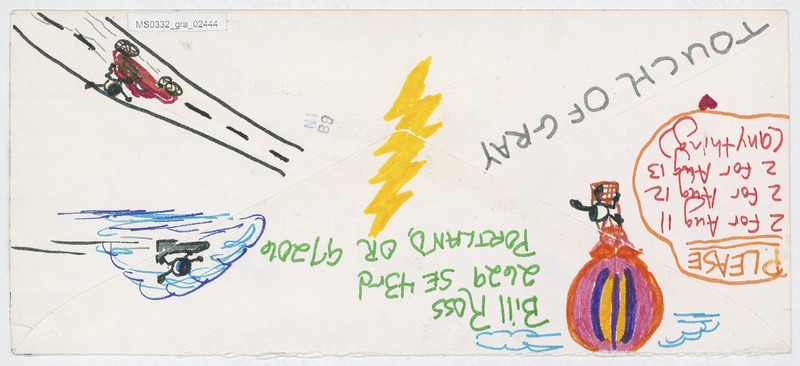 MS0332_gra_02444
PLEASE
2 for Aug 11
2 for Aug 12
2 for Aug 13
(anything)
Bill Ross
2629 SE 43rd
PORTLAND, OR 97206
TOUCH OF GRAY